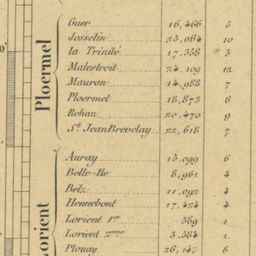 Ploërmel
Guer 16,466 5
Josselin 10
la Trinité 17,358 3
Malestroit 24,109 12
Mauron 14,983 7
Ploermel 18,873 6
Rohan 20,470 9
St. Jean Brevelay 22,618 7
Lorient
Auray 6
Belle-Ile 8,962 4
Belz 11,092 4
Hennebont 17,424 4
Lorient 1er
Lorient 2me 3,384 2
Plouay 26,147 6